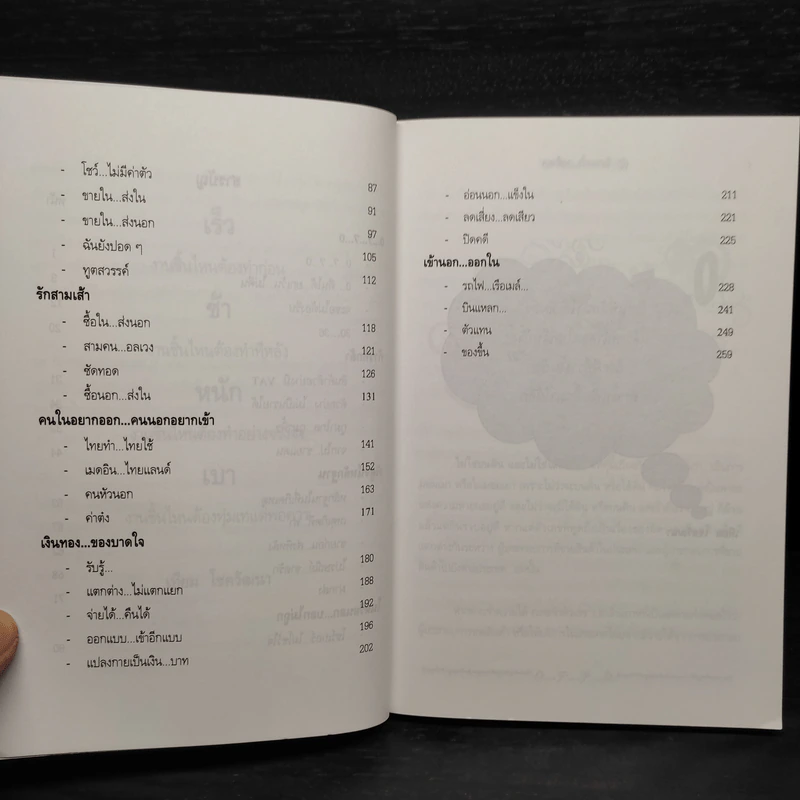 - โชว์...ไม่มีค่าตัว 87
- ขายใน...ส่งใน 91
- ขายใน...ส่งนอก 97
- ฉันยังปอด ๆ 105
- ทูตสวรรค์ 112
รักสามเส้า
- ซื้อใน...ส่งนอก 118
- สามคน...อลเวง 121
- ซัดทอด 126
- ซื้อนอก...ส่งใน 131
คนในอยากออก...คนนอกอยากเข้า
- ไทยทำ...ไทยใช้ 141
- เมดอิน...ไทยแลนด์ 152
- คนหัวนอก 163
- ค่าต๋ง 171
เงินทอง...ของบาดใจ
- รับรู้... 180
- แตกต่าง...ไม่แตกแยก 188
- จ่ายได้...คืนได้ 192
- ออกแบบ...เข้าอีกแบบ 196
- แปลงกายเป็นเงิน...บาท 202
- อ่อนนอก...แข็งใน 211
- ลดเสี่ยง...ลดเสียว 221
- ปิดคดี 225
เข้านอก...ออกใน
- รถไฟ...เรือเมล์... 228
- บินแหลก... 241
- ตัวแทน 249
- ของขึ้น 259